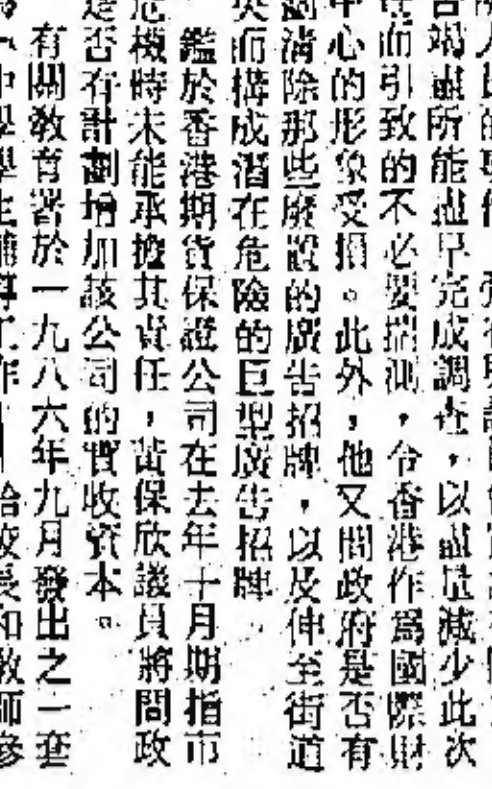 告竭盡所能盡早完成調查，以盡量減少此次
而引致的不必要揣測，令香港作為國際財
中心的形象受損。此外，他又問政府是否有
劃清除那些廢置的廣告招牌，以及伸至街道
而構成潛在危險的巨型廣告招牌。
鑑於香港期貨保證公司在去年十月期指市
危機時未能承擔其責任，黃保欣議員將問政
是否有計劃增加該公司的實收資本。
有關教育署於一九八六年九月發出之一套